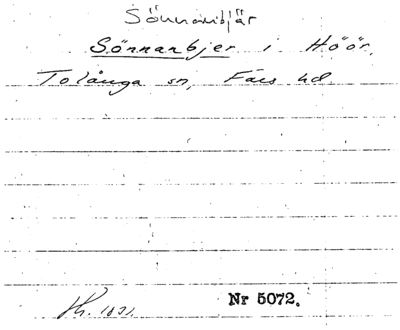 Sönnanbjär
Sönnanbjer i Höör.
Tolånga sn, Färs hd
Nr 5072.